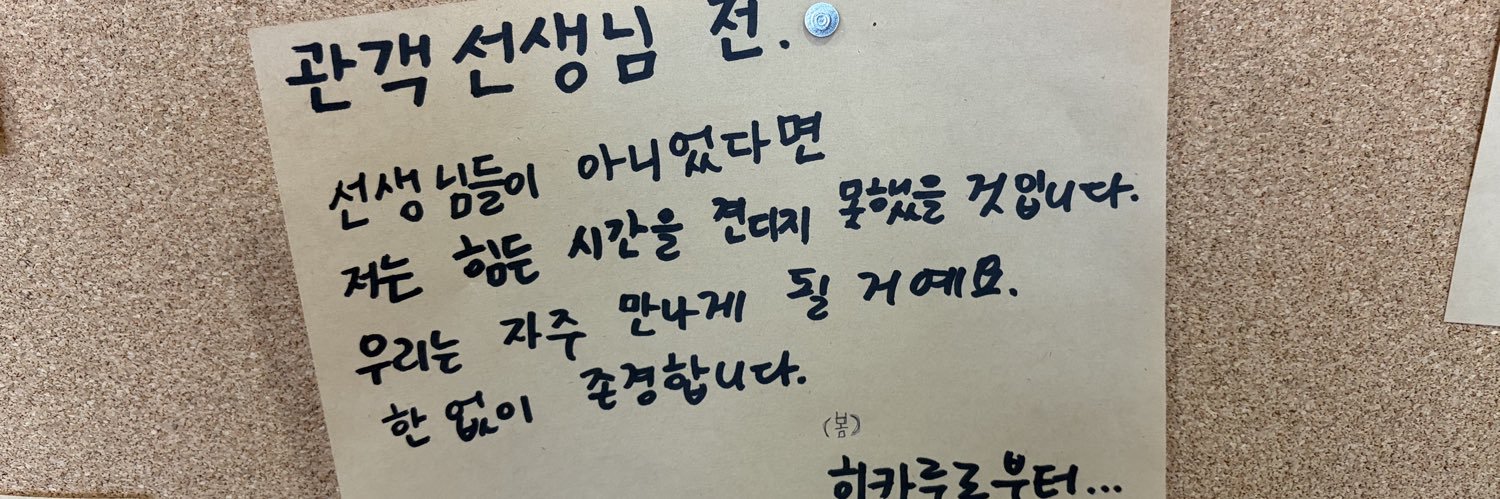 관객 선생님 전.
선생님들이 아니었다면
저는 힘든 시간을 견디지 못했을 것입니다.
우리는 자주 만나게 될 거예요.
한없이 존경합니다.
(봄)
히카루로부터...